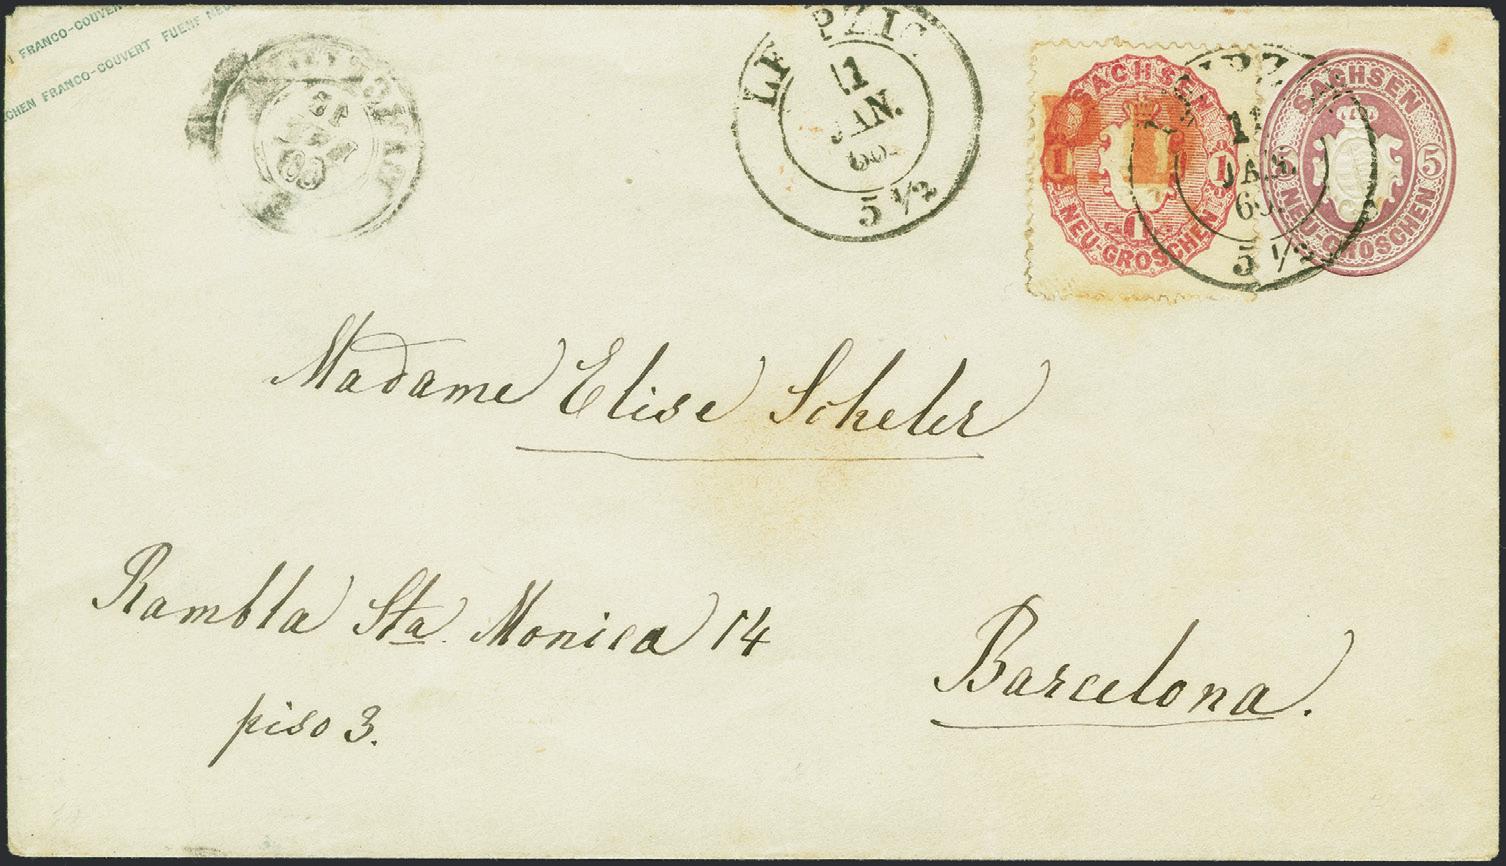 FRANCO-COUVER
CHEN FRANCO-COUVERT FUENF NEU
LEIPZIG
11
JAN.
66
5 1/2
SACHSEN
1 1
1
NEU-GROSCHEN
P.D.
11
JAN.
66
5 1/2
SACHSEN
5 5
NEU-GROSCHEN
Madame Elise Scheler
Rambla Sta. Monica 14
piso 3.
Barcelona.